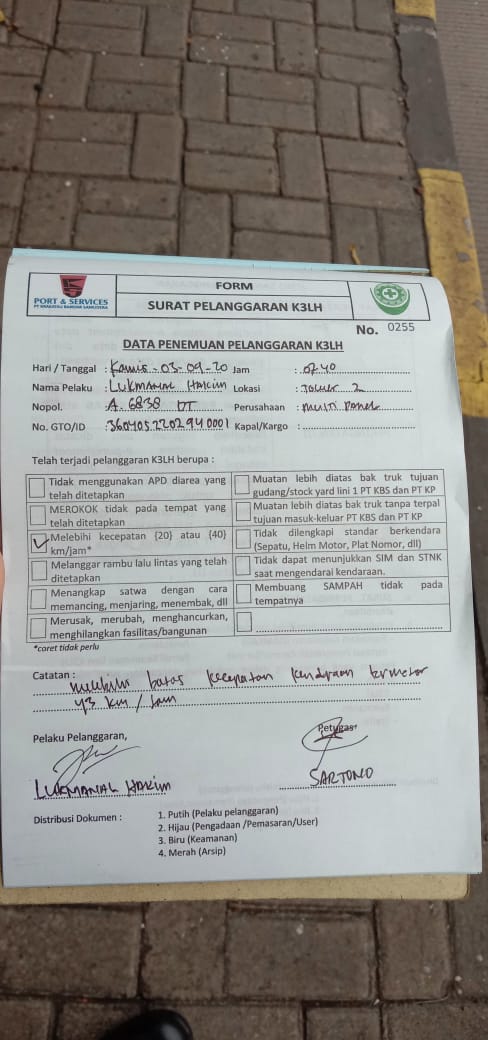 PORT & SERVICES
PT KRAKATAU BANDAR SAMUDERA
FORM
SURAT PELANGGARAN K3LH
No. 0255
DATA PENEMUAN PELANGGARAN K3LH
Hari / Tanggal : Kamis - 03-09-20 Jam : 07.40
Nama Pelaku : LUKMANAL HAKIM Lokasi : TOWER 2
Nopol. : A. 6838 UT Perusahaan : MULTI PANEL
No. GTO/ID : 3604052202940001 Kapal/Kargo :
Telah terjadi pelanggaran K3LH berupa :
Tidak menggunakan APD diarea yang telah ditetapkan
Muatan lebih diatas bak truk tujuan gudang/stock yard lini 1 PT KBS dan PT KP
MEROKOK tidak pada tempat yang telah ditetapkan
Muatan lebih diatas bak truk tanpa terpal tujuan masuk-keluar PT KBS dan PT KP
Melebihi kecepatan (20) atau (40) km/jam*
Tidak dilengkapi standar berkendara (Sepatu, Helm Motor, Plat Nomor, dll)
Melanggar rambu lalu lintas yang telah ditetapkan
Tidak dapat menunjukkan SIM dan STNK saat mengendarai kendaraan.
Menangkap satwa dengan cara memancing, menjaring, menembak, dll
Membuang SAMPAH tidak pada tempatnya
Merusak, merubah, menghancurkan, menghilangkan fasilitas/bangunan
*coret tidak perlu
Catatan : melebihi batas kecepatan kendraan bermotor
43 km / Jam
Pelaku Pelanggaran,
Petugas
LUKMANAL HAKIM
SARTONO
Distribusi Dokumen : 1. Putih (Pelaku pelanggaran)
2. Hijau (Pengadaan /Pemasaran/User)
3. Biru (Keamanan)
4. Merah (Arsip)